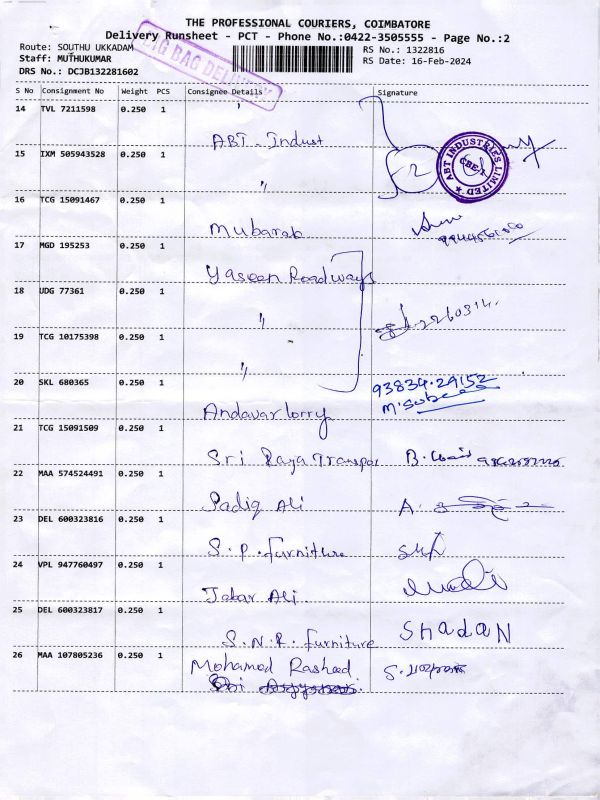 THE PROFESSIONAL COURIERS, COIMBATORE
Delivery Runsheet - PCT - Phone No.:0422-3505555 - Page No.:2
Route: SOUTHU UKKADAM
RS No.: 1322816
Staff: MUTHUKUMAR
RS Date: 16-Feb-2024
DRS No.: DCJB132281602
BIG BAG DELIVERY
S No Consignment No Weight PCS Consignee Details Signature
14 TVL 7211598 0.250 1 "
ABT - Indust
15 IXM 505943528 0.250 1 "
ABT INDUSTRIES LIMITED
CBE-1
16 TCG 15091467 0.250 1 Mubarab
17 MGD 195253 0.250 1 Yaseen Roadways
18 UDG 77361 0.250 1 "
19 TCG 10175398 0.250 1 "
20 SKL 680365 0.250 1 Andavar lorry
93834.29152
21 TCG 15091509 0.250 1 Sri Raja Transpor
22 MAA 574524491 0.250 1 Sadiq Ali
A.
23 DEL 600323816 0.250 1 S.P. furniture
24 VPL 947760497 0.250 1 Jabar Ali
25 DEL 600323817 0.250 1 S.N.R. furniture
SHADAN
26 MAA 107805236 0.250 1 Mohamed Rasheed